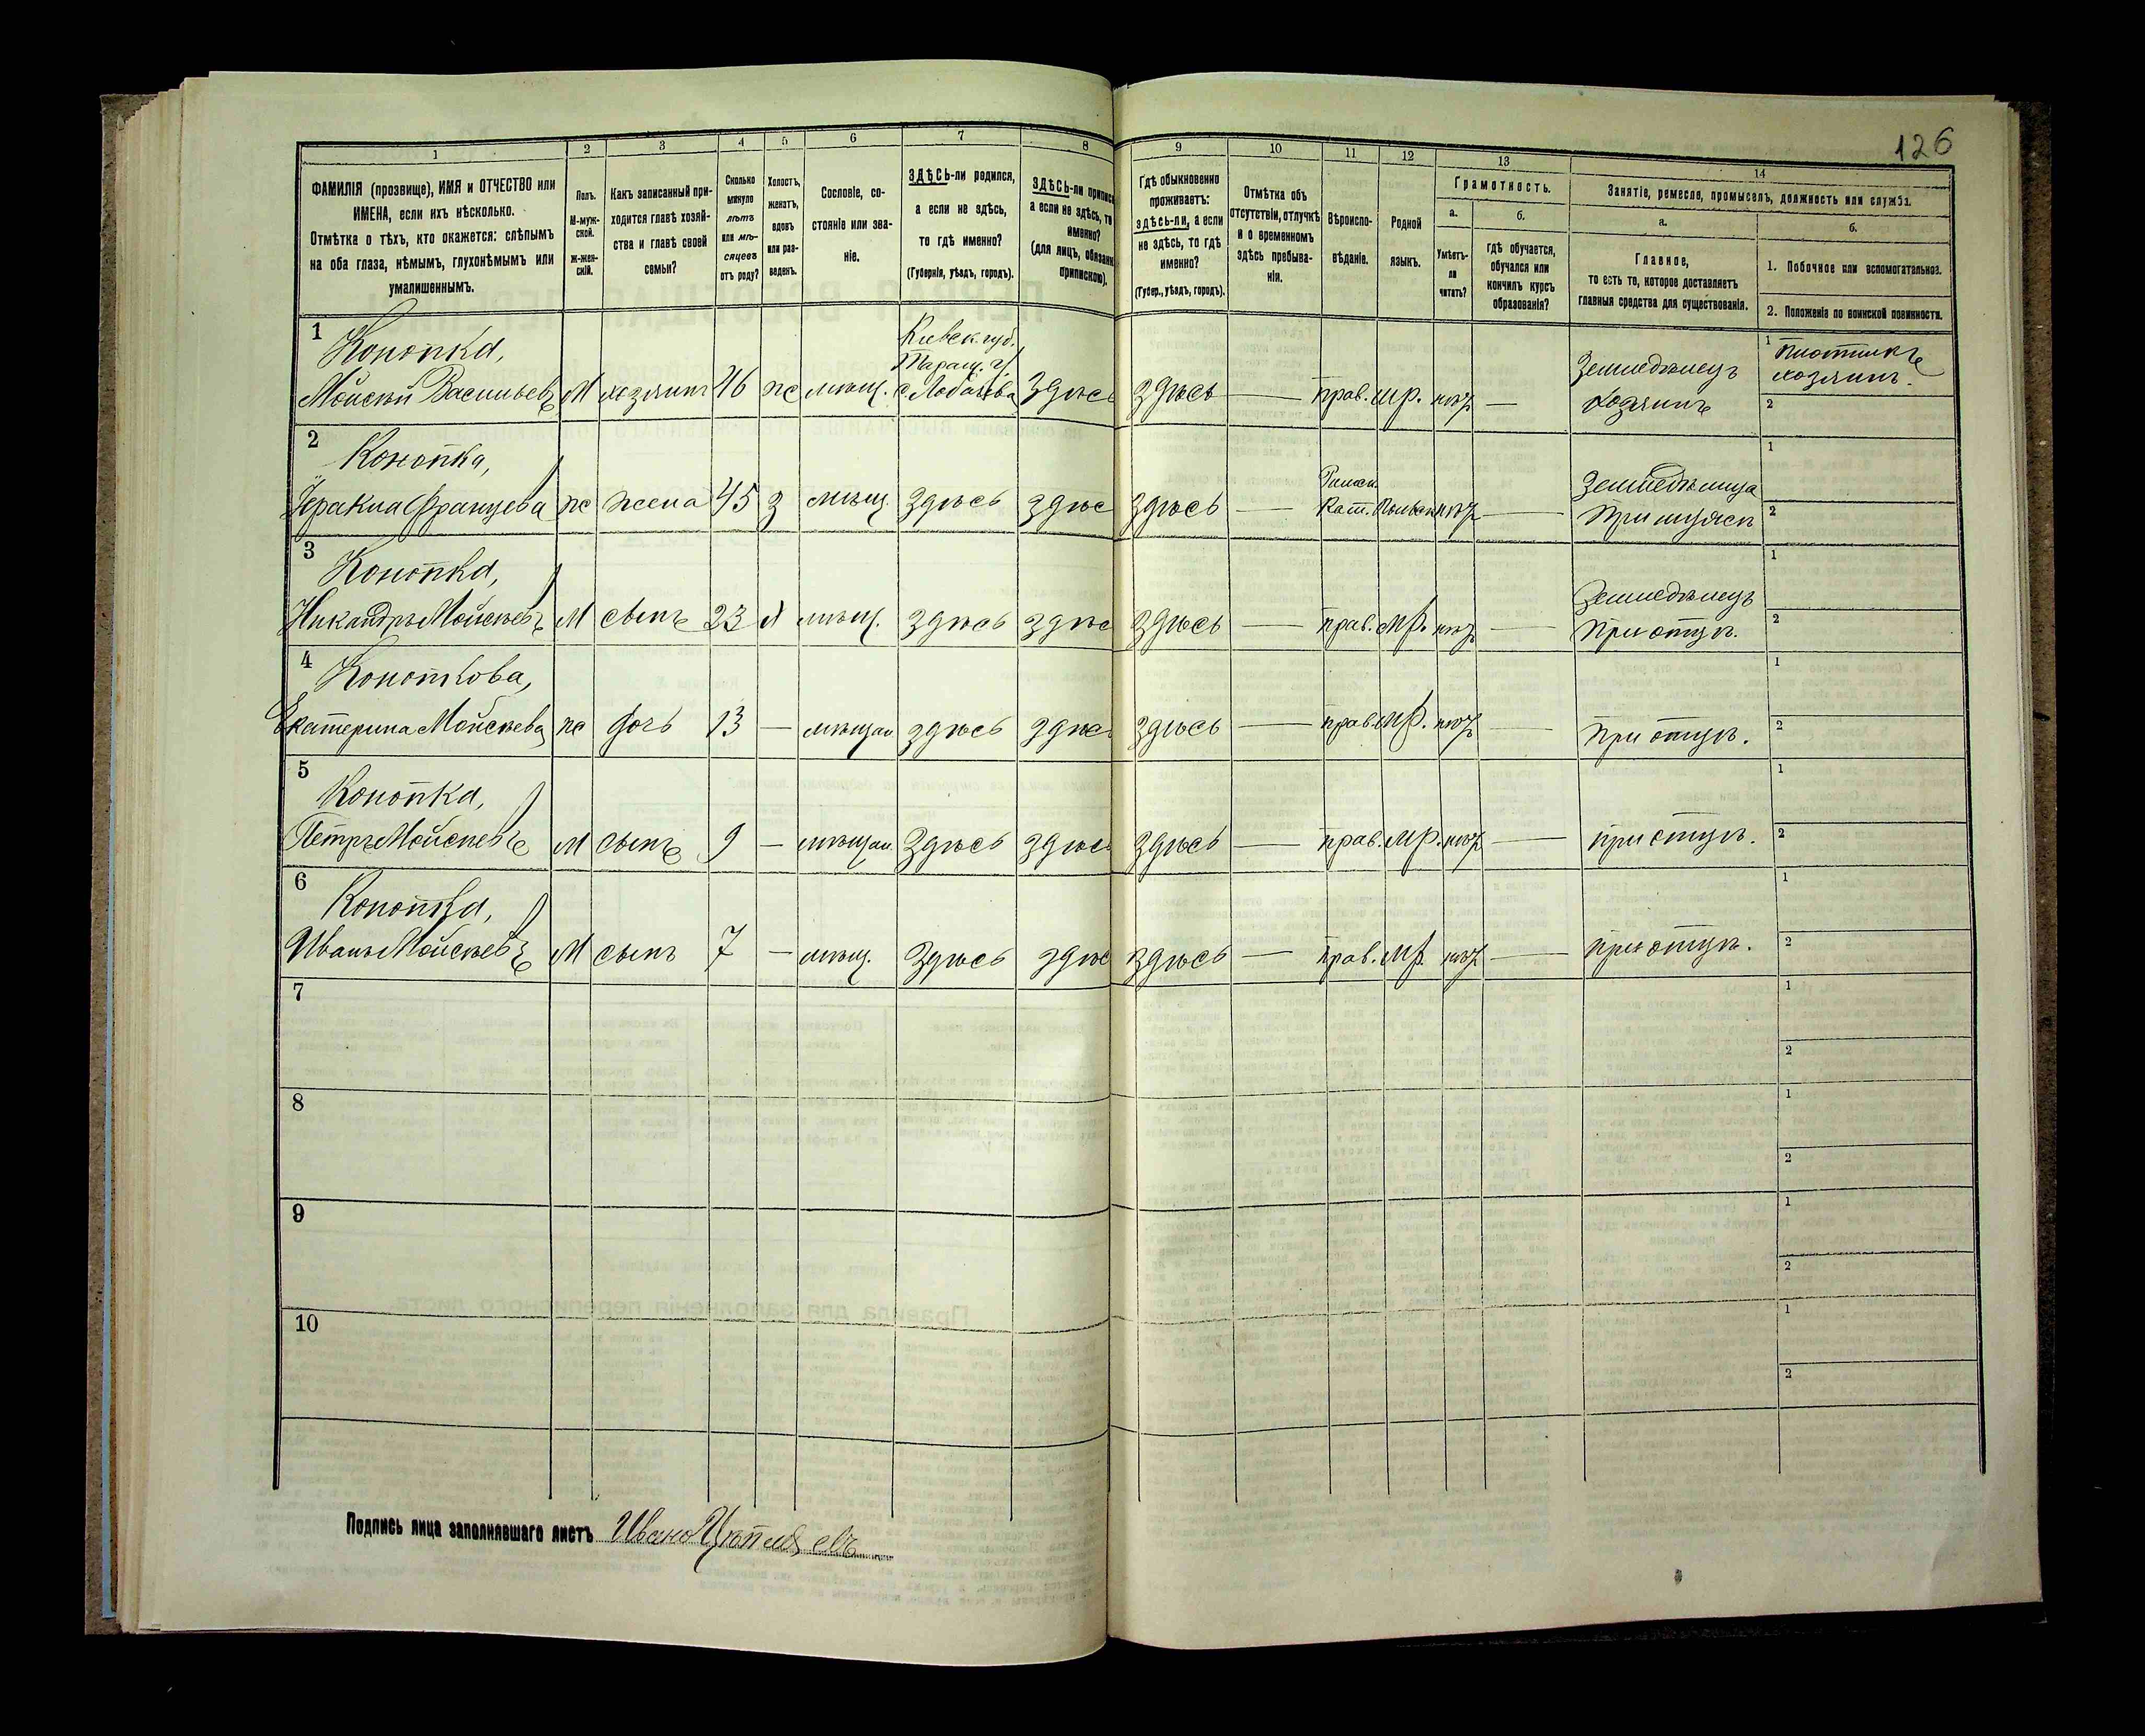 126
1 2 3 4 5 6 7 8 9 10 11 12 13 14
ФАМИЛІЯ (прозвище), ИМЯ и ОТЧЕСТВО или
ИМЕНА, если ихъ нѣсколько.
Отмѣтка о тѣхъ, кто окажется: слѣпымъ
на оба глаза, нѣмымъ, глухонѣмымъ или
умалишеннымъ.
Полъ.
М-муж-
ской.
Ж-жен-
скій.
Какъ записанный при-
ходится главѣ хозяй-
ства и главѣ своей
семьи?
Сколько
минуло
лѣтъ
или мѣ-
сяцевъ
отъ роду?
Холостъ,
женатъ,
вдовъ
или раз-
веденъ.
Сословіе, со-
стояніе или зва-
ніе.
ЗДѢСЬ-ли родился,
а если не здѣсь,
то гдѣ именно?
(Губернія, уѣздъ, городъ).
ЗДѢСЬ-ли припис
а если не здѣсь, то
именно?
(для лицъ, обязанн
припискою).
Гдѣ обыкновенно
проживаетъ:
здѣсь-ли, а если
не здѣсь, то гдѣ
именно?
(Губер., уѣздъ, городъ).
Отмѣтка объ
отсутствіи, отлучкѣ
и о временномъ
здѣсь пребыва-
ніи.
Вѣроиспо-
вѣданіе.
Родной
языкъ.
Грамотность.
а.
Умѣетъ-
ли
читать?
б.
гдѣ обучается,
обучался или
кончилъ курсъ
образованія?
Занятіе, ремесло, промыселъ, должность или служба.
а.
Главное,
то есть то, которое доставляетъ
главныя средства для существованія.
б.
1. Побочное или вспомогательное.
2. Положеніе по воинской повинности.
1 Конопка, Кіевск. губ. 1 плотникъ
Таращ. у. Земледѣлецъ хозяинъ.
Мойсѣй Васильевъ М хозяинъ 46 ж мѣщ. с. здѣсь здѣсь — прав. мр. нѣт — хозяинъ 2
2 Конопка, 1
Римск. Земледѣлица
Францева ж жена 45 з мѣщ. здѣсь здѣс здѣсь — Кат. Польск нѣт — при мужѣ 2
3 Конопка, 1
Земледѣлецъ
Никандръ Мойсѣевъ М сынъ 23 х мѣщ. здѣсь здѣс здѣсь — прав. мр. нѣт — при отцѣ. 2
4 Конопкова, 1
Екатерина Мойсѣева ж дочь 13 — мѣщан. здѣсь здѣс здѣсь — прав. мр. нѣт — при отцѣ. 2
5 Конопка, 1
Петръ Мойсѣевъ М сынъ 9 — мѣщан. здѣсь здѣсь здѣсь — прав. мр. нѣт — при отцѣ. 2
6 Конопка, 1
Иванъ Мойсѣевъ М сынъ 7 — мѣщ. здѣсь здѣс здѣсь — прав. мр. нѣт — при отцѣ. 2
7 1
2
8 1
2
9 1
2
10 1
2
Подпись лица заполнявшаго листъ